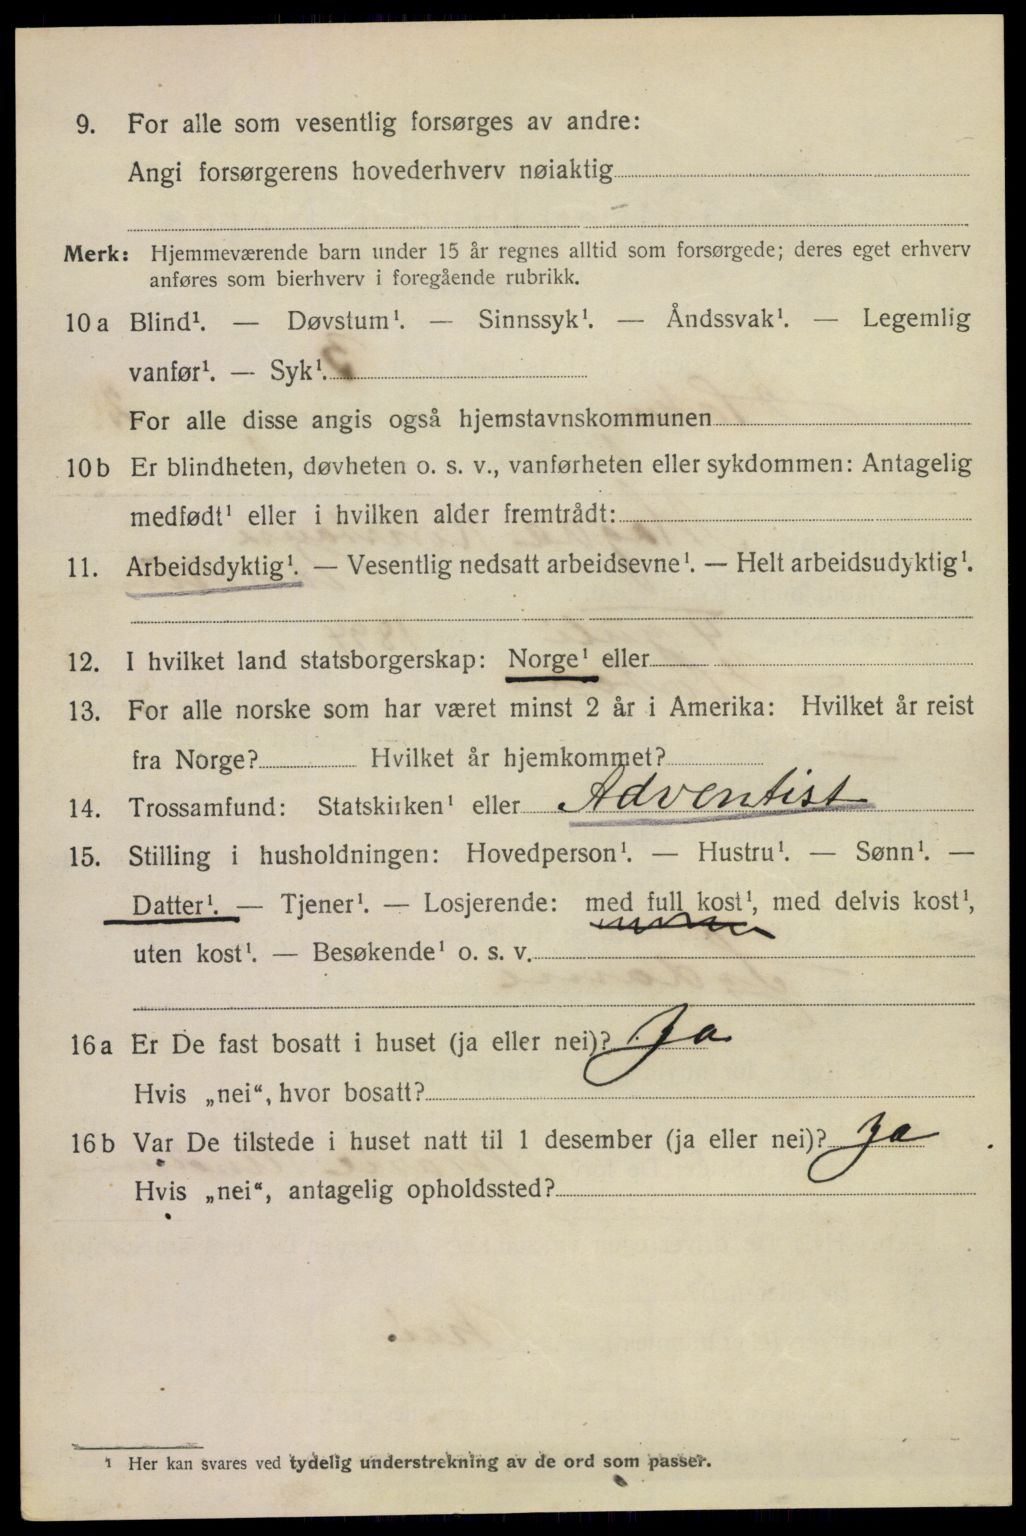 9. For alle som vesentlig forsørges av andre:
Angi forsørgerens hovederhverv nøiaktig
Merk: Hjemmeværende barn under 15 år regnes alltid som forsørgede; deres eget erhverv
anføres som bierhverv i foregående rubrikk.
10 a Blind¹. — Døvstum¹. — Sinnssyk¹. — Åndssvak¹. — Legemlig
vanfør¹. — Syk¹.
For alle disse angis også hjemstavnskommunen
10 b Er blindheten, døvheten o. s. v., vanførheten eller sykdommen: Antagelig
medfødt¹ eller i hvilken alder fremtrådt:
11. Arbeidsdyktig¹. — Vesentlig nedsatt arbeidsevne¹. — Helt arbeidsudyktig¹.
12. I hvilket land statsborgerskap: Norge¹ eller
13. For alle norske som har været minst 2 år i Amerika: Hvilket år reist
fra Norge? Hvilket år hjemkommet?
14. Trossamfund: Statskirken¹ eller Adventist
15. Stilling i husholdningen: Hovedperson¹. — Hustru¹. — Sønn¹. —
Datter¹. — Tjener¹. — Losjerende: med full kost¹, med delvis kost¹,
uten kost¹. — Besøkende¹ o. s. v.
16 a Er De fast bosatt i huset (ja eller nei)? Ja
Hvis „nei“, hvor bosatt?
16 b Var De tilstede i huset natt til 1 desember (ja eller nei)? Ja
Hvis „nei“, antagelig opholdssted?
¹ Her kan svares ved tydelig understrekning av de ord som passer.